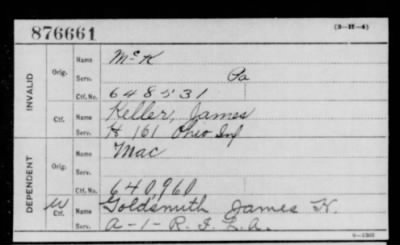 876661 (3-II-4)
INVALID Orig. Name McK
Serv. Pa
Ctf. No. 648531
Ctf. Name Keller, James
Serv. H 161 Ohio Inf
DEPENDENT Orig. Name Mac
Serv.
Ctf. No. 640,960
W Ctf. Name Goldsmith James H.
Serv. A-1-R. I. L. A.